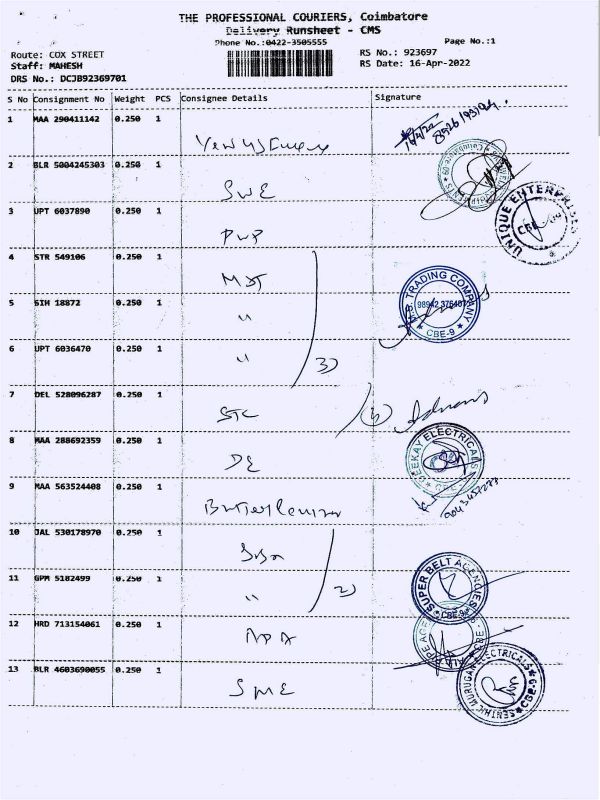 THE PROFESSIONAL COURIERS, Coimbatore
Delivery Runsheet - CMS
Phone No.:0422-3505555
Page No.:1
Route: COX STREET
RS No.: 923697
Staff: MAHESH
RS Date: 16-Apr-2022
DRS No.: DCJB92369701
S No Consignment No Weight PCS Consignee Details Signature
1 MAA 290411142 0.250 1
2 BLR 5004245303 0.250 1
SWE
3 UPT 6037890 0.250 1
PWP
UNIQUE ENTERPRISES
CBE
4 STR 549106 0.250 1
MST
TRADING COMPANY
CBE-9
5 SIH 18872 0.250 1
"
6 UPT 6036470 0.250 1
"
3)
7 DEL 528096287 0.250 1
STC
8 MAA 288692359 0.250 1
DE
DEEKAY ELECTRICALS
9 MAA 563524408 0.250 1
10 JAL 530178970 0.250 1
SUPER BELT AGENCIES
CBE-9
11 GPM 5182499 0.250 1
"
2)
12 HRD 713154061 0.250 1
13 BLR 4603690055 0.250 1
SME
SENTHIL MURUGAN ELECTRICALS
CBE-9